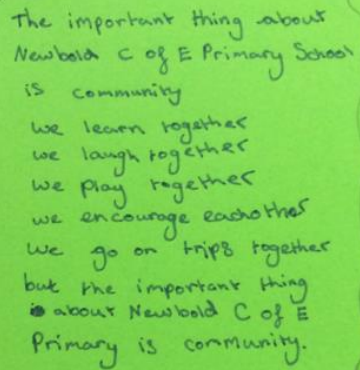 The important thing about
Newbold C of E Primary School
is community
we learn together
we laugh together
we play together
we encourage eachother
we go on trips together
but the important thing
about Newbold C of E
Primary is community.